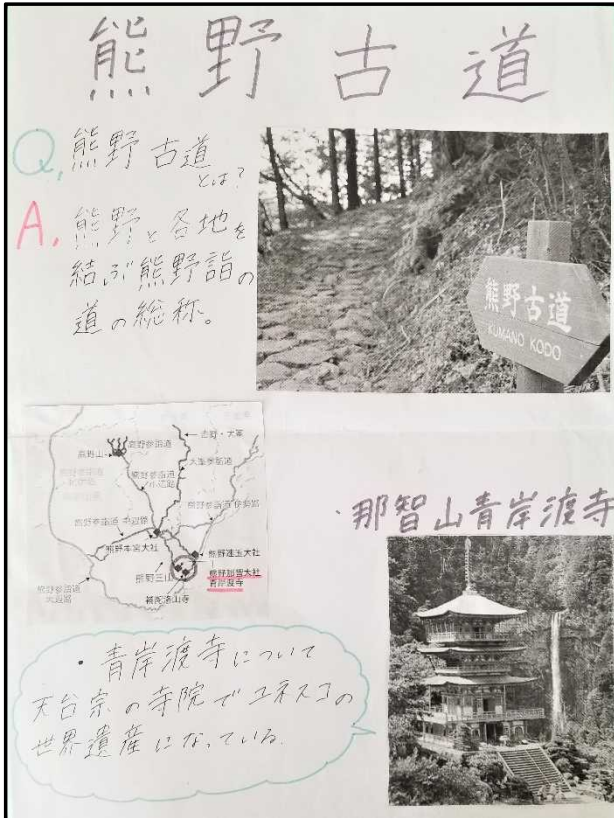 熊野古道
Q. 熊野古道
とは?
A. 熊野と各地を
結ぶ熊野詣の
道の総称。
熊野古道
KUMANO KODO
吉野・大峯
高野参詣道
高野山
大峯奥駈道
熊野参詣道
小辺路
熊野参詣道 伊勢路
熊野参詣道 中辺路
熊野本宮大社
熊野速玉大社
熊野三山
熊野那智大社
青岸渡寺
補陀洛山寺
熊野参詣道
大辺路
・那智山青岸渡寺
・青岸渡寺について
天台宗の寺院でユネスコの
世界遺産になっている。